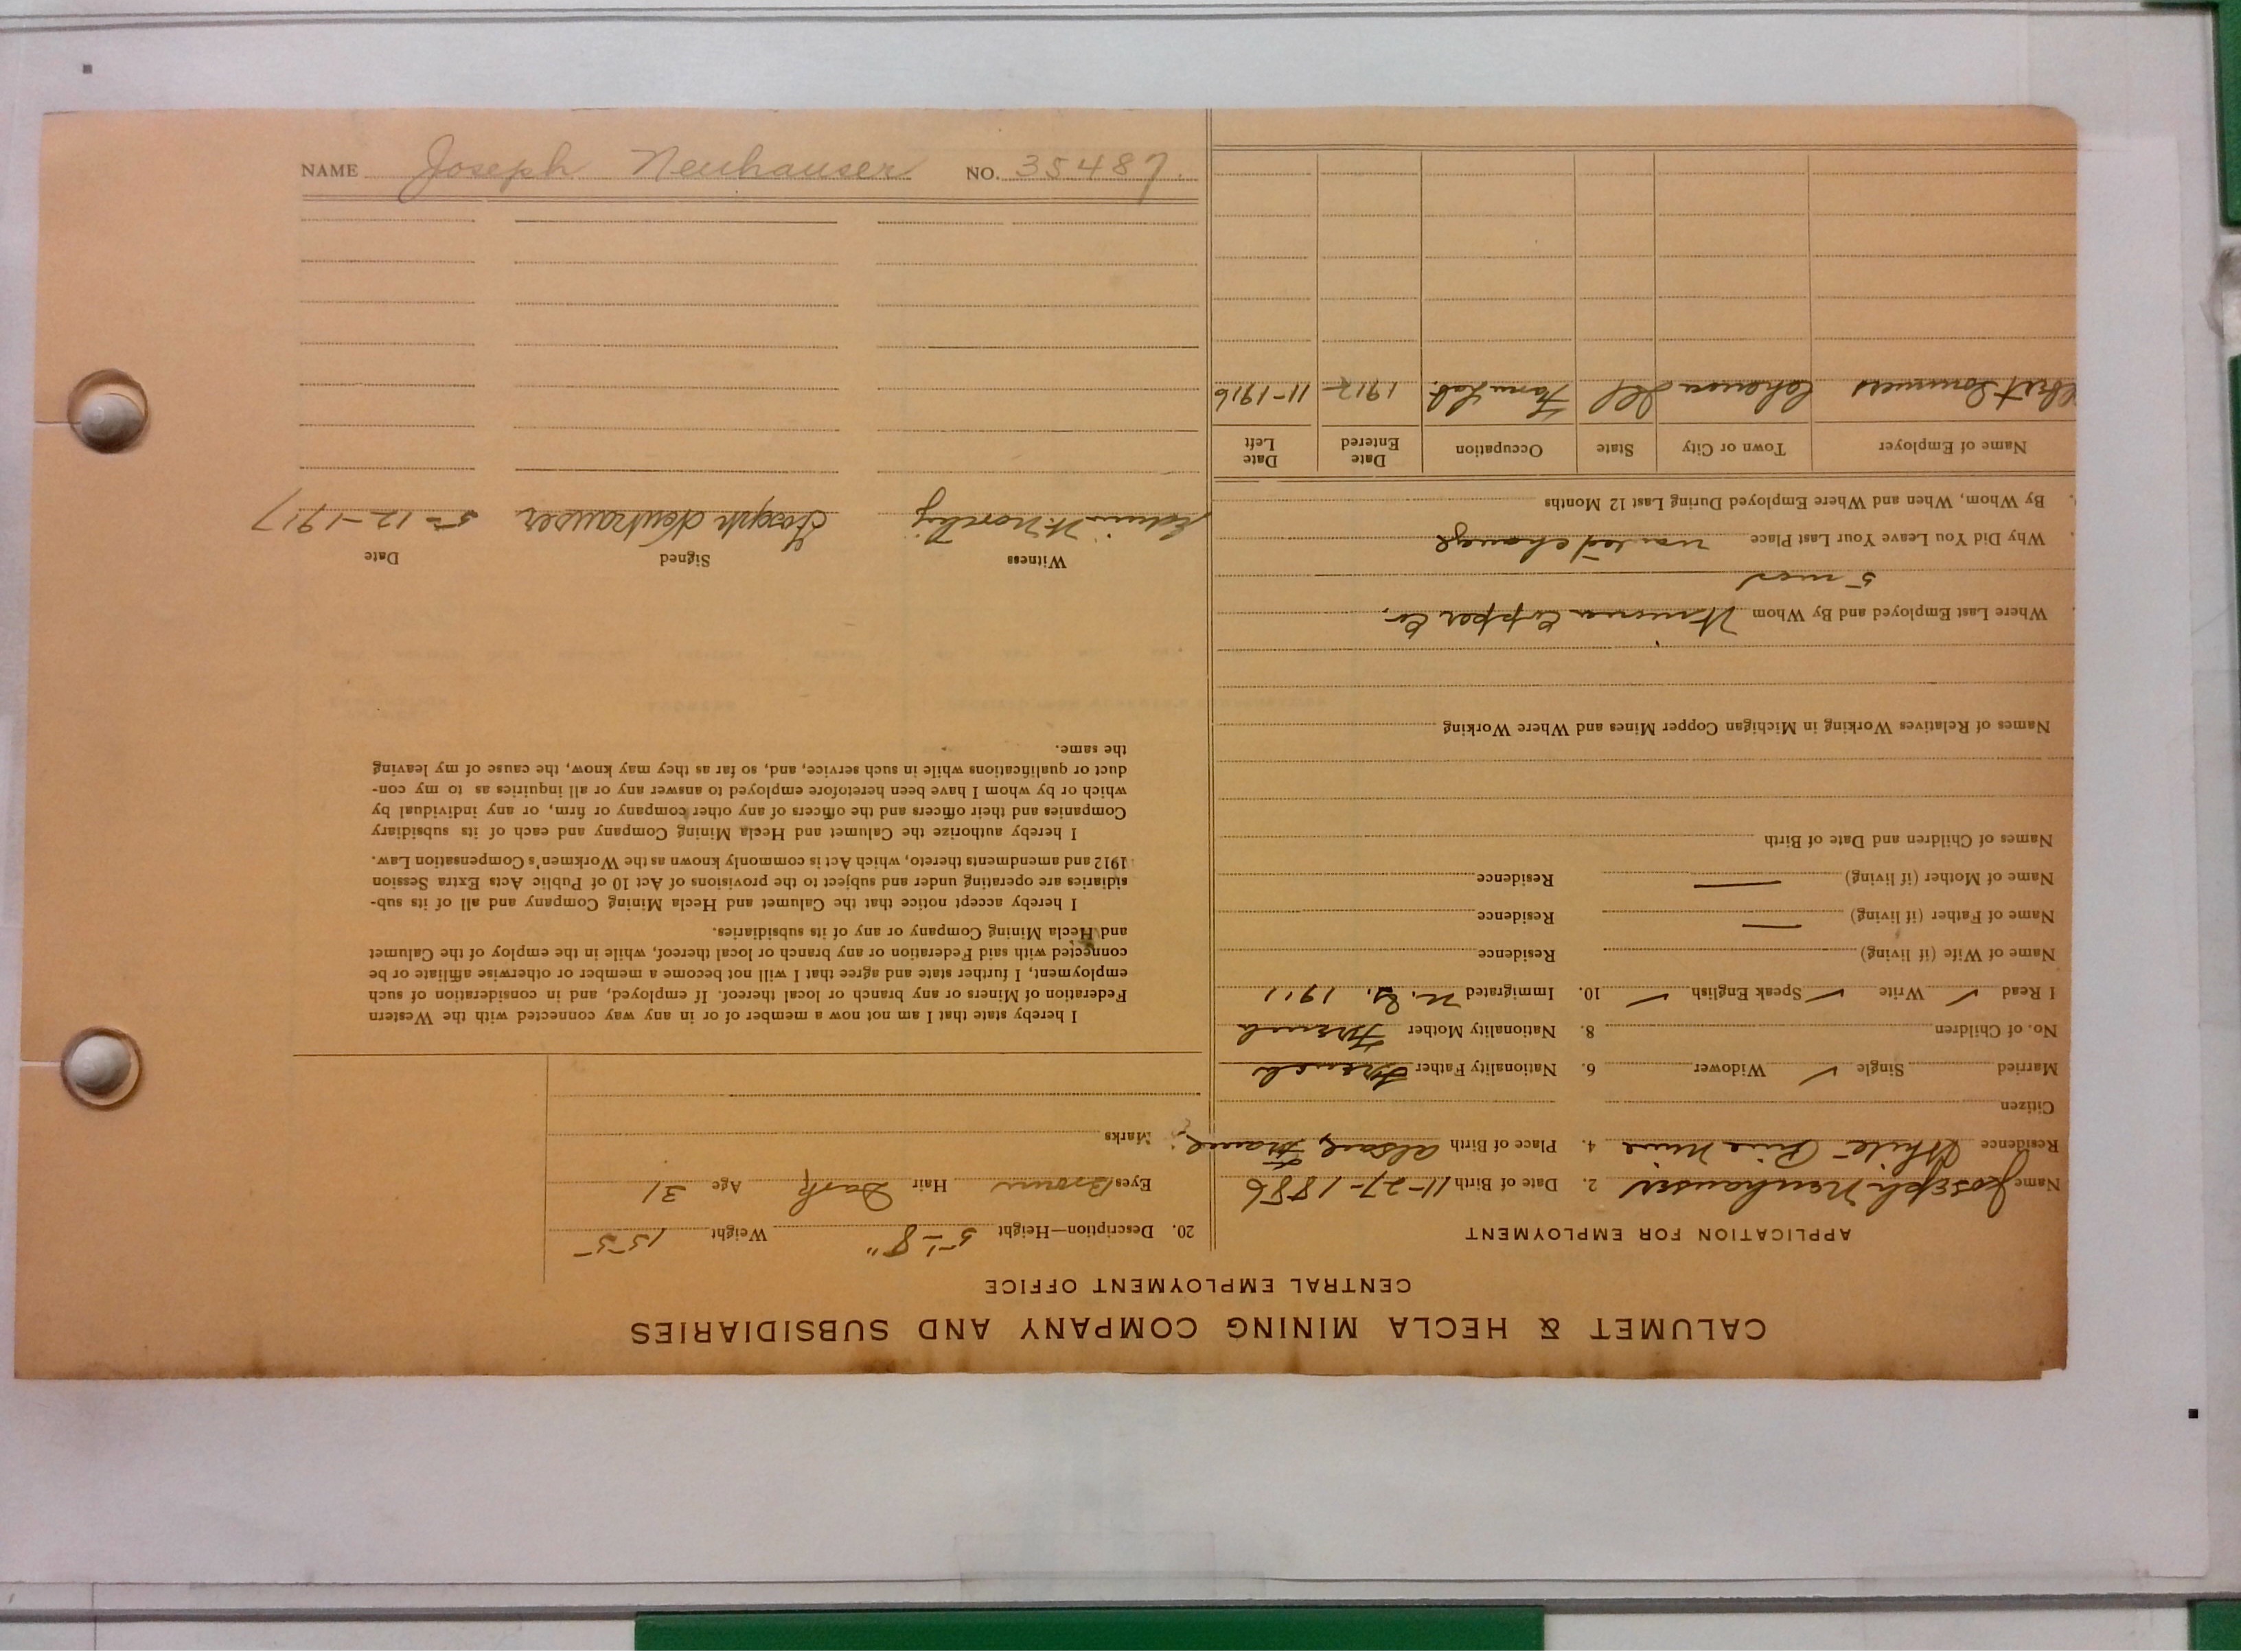 NAME Joseph Neuhauser NO. 35487.
CALUMET & HECLA MINING COMPANY AND SUBSIDIARIES
CENTRAL EMPLOYMENT OFFICE
APPLICATION FOR EMPLOYMENT
Name Joseph Neuhauser 2. Date of Birth 11-27-1886
Residence White Pine Mine 4. Place of Birth Alsace, France.
Citizen
Married Single ✓ Widower 6. Nationality Father French
No. of Children 8. Nationality Mother French
I Read ✓ Write ✓ Speak English ✓ 10. Immigrated N.Y. 1911
Name of Wife (if living) Residence
Name of Father (if living) — Residence
Name of Mother (if living) — Residence
Names of Children and Date of Birth
Names of Relatives Working in Michigan Copper Mines and Where Working
Where Last Employed and By Whom Winona Copper Co.
5 mos
Why Did You Leave Your Last Place wanted change
By Whom, When and Where Employed During Last 12 Months
Name of Employer Town or City State Occupation Date Entered Date Left
Ill Farm Lab. 1912 11-1916
20. Description—Height 5'-8" Weight 155
Eyes Brown Hair Dark Age 31
Marks
I hereby state that I am not now a member of or in any way connected with the Western
Federation of Miners or any branch or local thereof. If employed, and in consideration of such
employment, I further state and agree that I will not become a member or otherwise affiliate or be
connected with said Federation or any branch or local thereof, while in the employ of the Calumet
and Hecla Mining Company or any of its subsidiaries.
I hereby accept notice that the Calumet and Hecla Mining Company and all of its sub-
sidiaries are operating under and subject to the provisions of Act 10 of Public Acts Extra Session
1912 and amendments thereto, which Act is commonly known as the Workmen's Compensation Law.
I hereby authorize the Calumet and Hecla Mining Company and each of its subsidiary
Companies and their officers and the officers of any other company or firm, or any individual by
which or by whom I have been heretofore employed to answer any or all inquiries as to my con-
duct or qualifications while in such service, and, so far as they may know, the cause of my leaving
the same.
Witness Signed Date
Edwin Joseph Neuhauser 5-12-1917